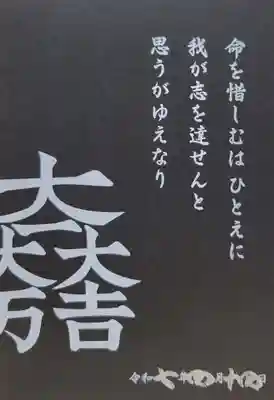 命を惜しむはひとえに
我が志を達せんと
思うがゆえなり
大一大万大吉